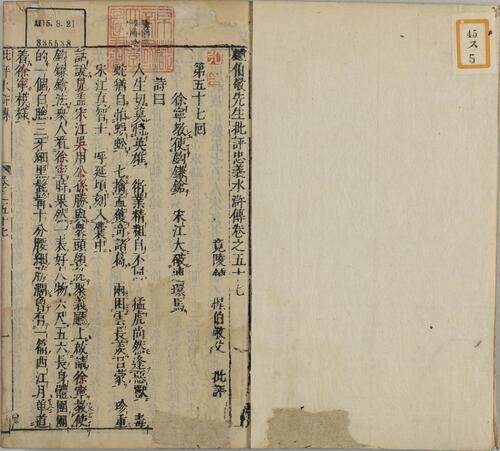 鍾伯敬先生批評忠義水滸傳卷之五十七
竟陵 鍾惺伯敬父 批評
第五十七回
徐寧教使鉤鐮鎗 宋江大破連環馬
詩曰
人生切莫恃英雄 術業精粗自不同 猛虎尚然逢惡獸 毒
蛇猶自怕蜈蚣 七擒孟獲奇諸葛 兩困雲長羨呂蒙 珍重
宋江真智士 呼延頃刻入囊中
話說晁盖宋江吳用公孫勝與衆頭領就聚義廳上啟請徐寧教使
鉤鐮鎗法衆人看徐寧時果然一表好人物六尺五六長身體團團
的一個白臉三牙細黑髭髯十分腰細膀闊曾有一篇西江月單道
着徐寧模樣
批評水滸傳
卷之五十七
45
ス
5
335538